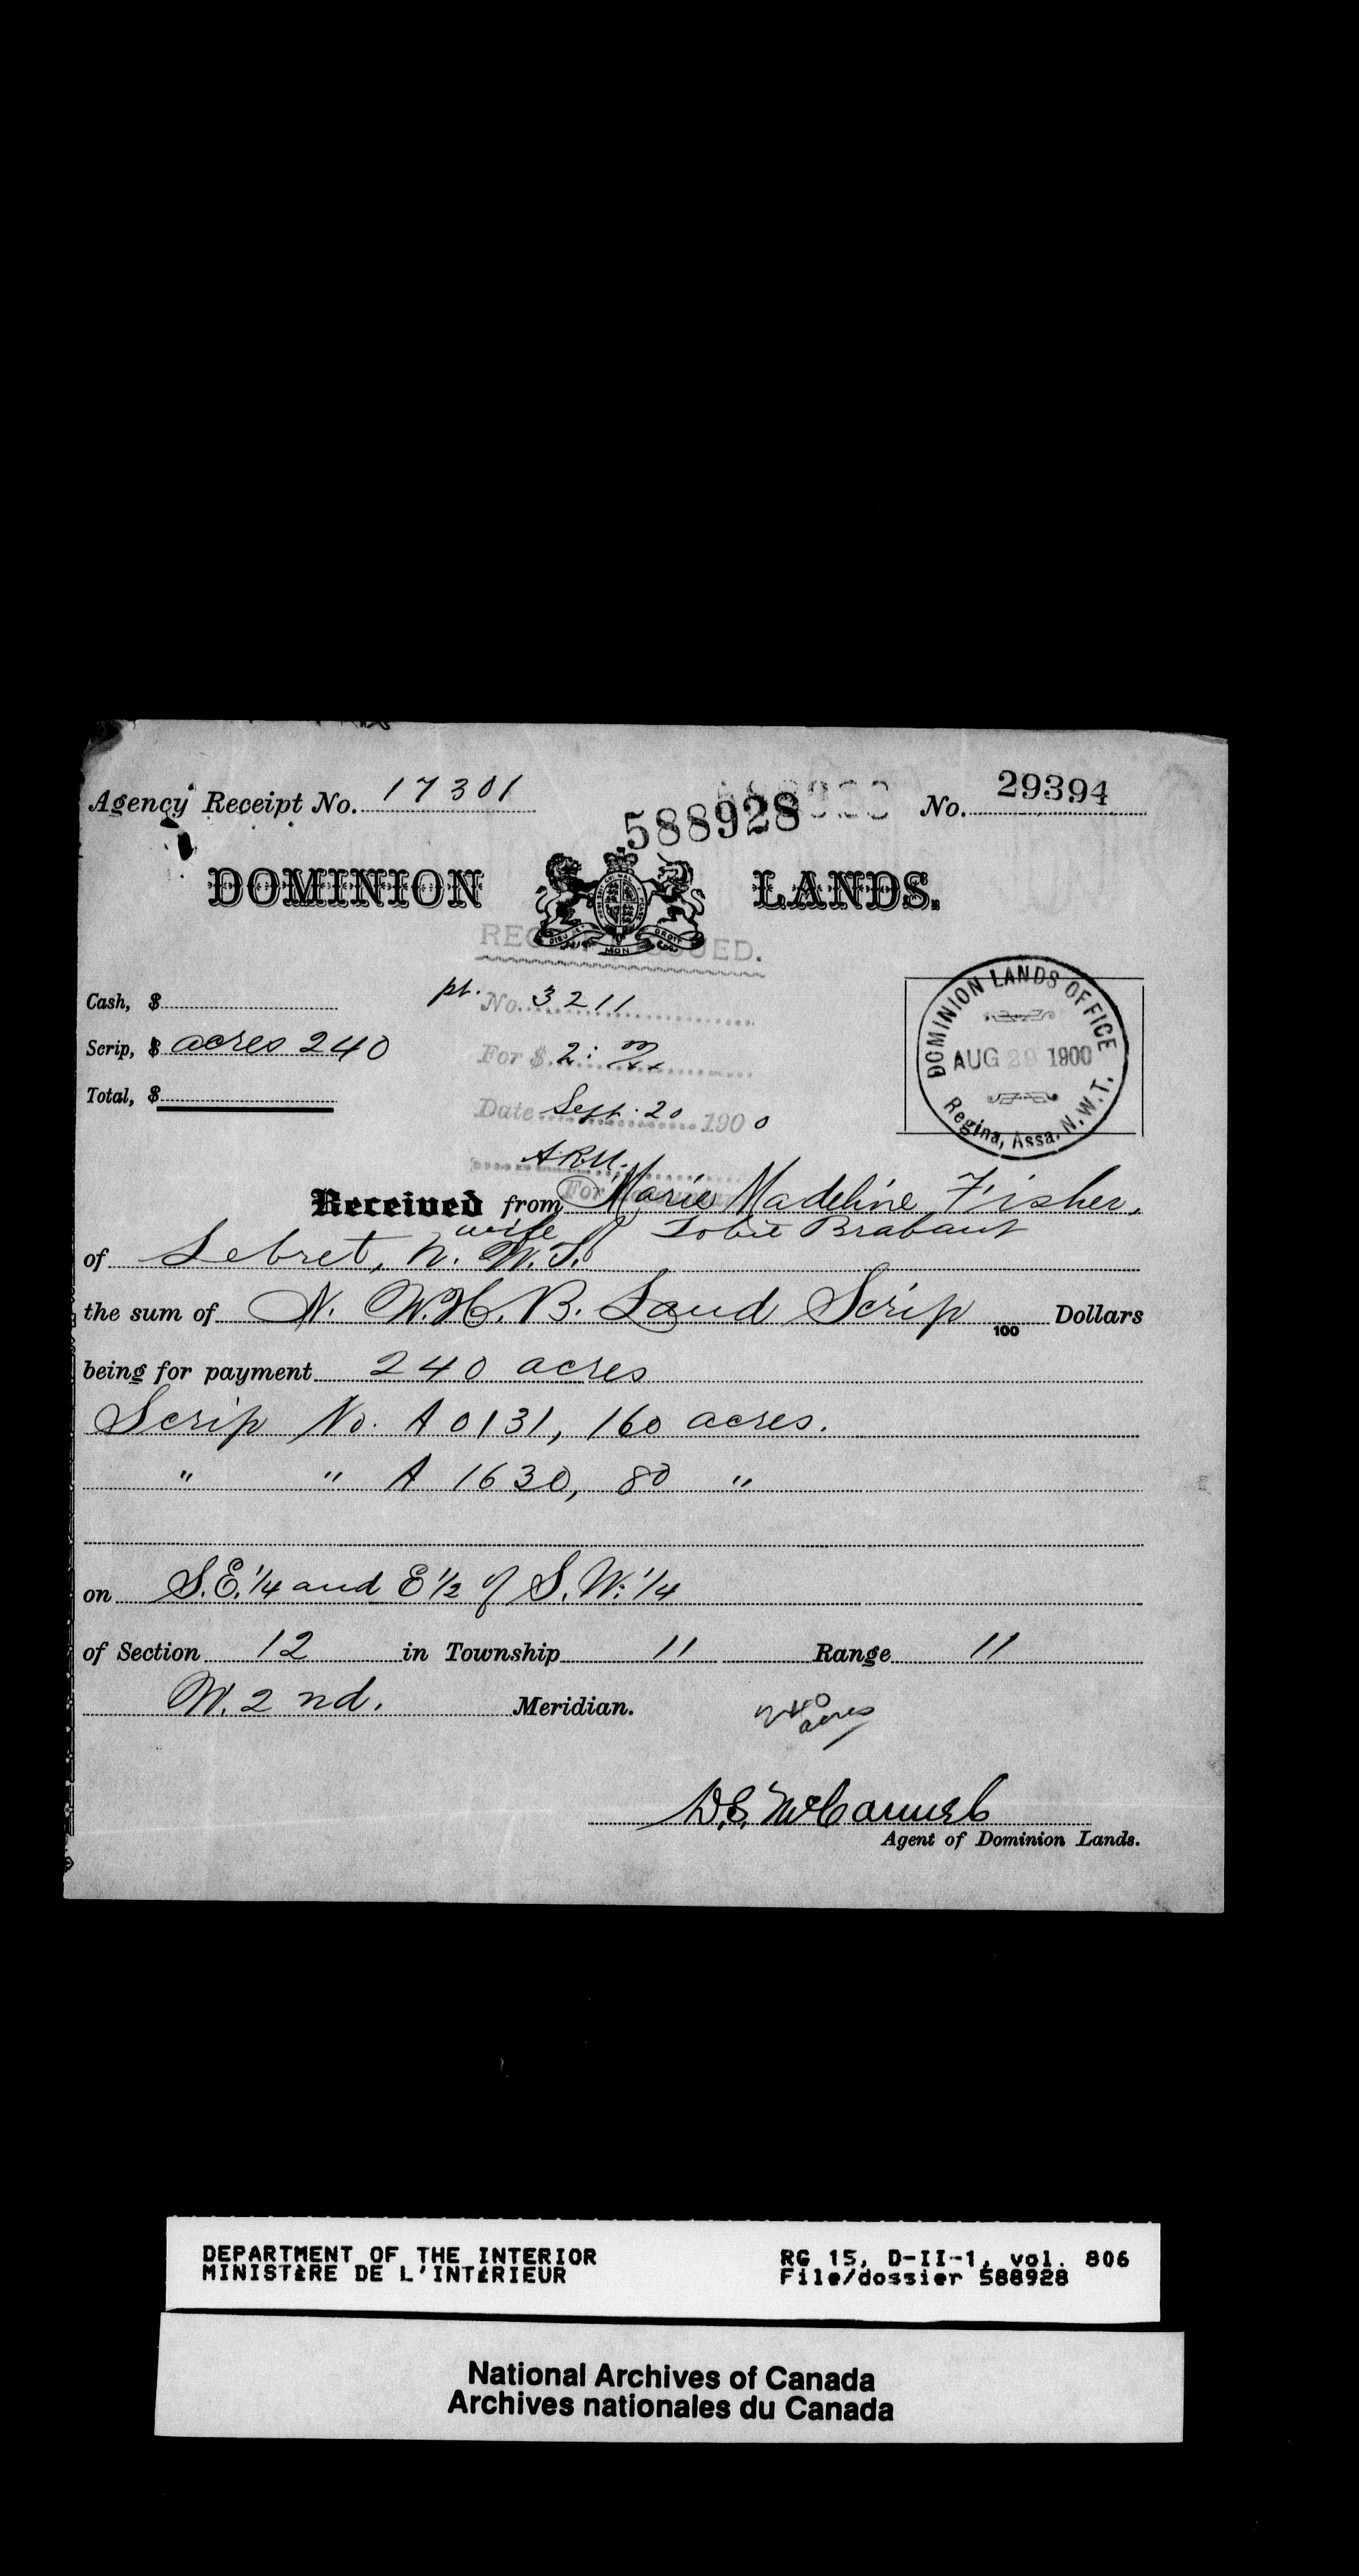 Agency Receipt No. 17301
588928
No. 29394
DOMINION LANDS.
DIEU ET MON DROIT
RECEIPT ISSUED.
Cash, $
Scrip, $ acres 240
Total, $
pt. No. 3211
For $ 2:
Date Sept. 20 1900
DOMINION LANDS OFFICE
AUG 29 1900
Regina, Assa. N.W.T.
Received from Marie Madeline Fisher,
wife of Tobie Brabant
of Lebret, N. W. T.
the sum of N. W. H. B. Land Scrip 100 Dollars
being for payment 240 acres
Scrip No. A 0131, 160 acres.
" " A 1630, 80 "
on S.E. 1/4 and E 1/2 of S. W. 1/4
of Section 12 in Township 11 Range 11
W. 2 nd. Meridian.
240
acres
Agent of Dominion Lands.
DEPARTMENT OF THE INTERIOR
MINISTÈRE DE L'INTÉRIEUR
RG 15, D-II-1, vol. 806
File/dossier 588928
National Archives of Canada
Archives nationales du Canada